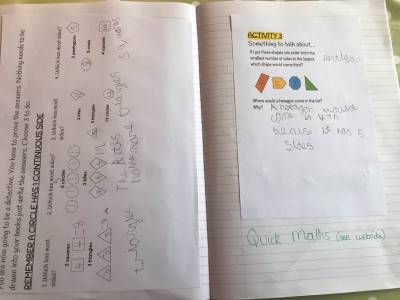 You are now going to be a detective. You have to prove the answers. Nothing needs to be
drawn into your books just write the answers. Choose 3 to do.
REMEMBER A CIRCLE HAS 1 CONTINUOUS SIDE
1. Which has most sides?
2 squares
3 triangles
2. Which has most sides?
5 circles
3 kites
3. Which has most sides?
5 triangles
11 circles
4. Which has most sides?
3 pentagons
5 ovals
4 squares
triangles
The kites
have more
triangles
squares
ACTIVITY 3
Something to talk about...
If I put these shapes into order from the
smallest number of sides to the largest,
which shape would come third?
Where would a hexagon come in the list?
Why?
A hexagon would
come in 4th
because it has 5
sides
Quick Maths (see website)